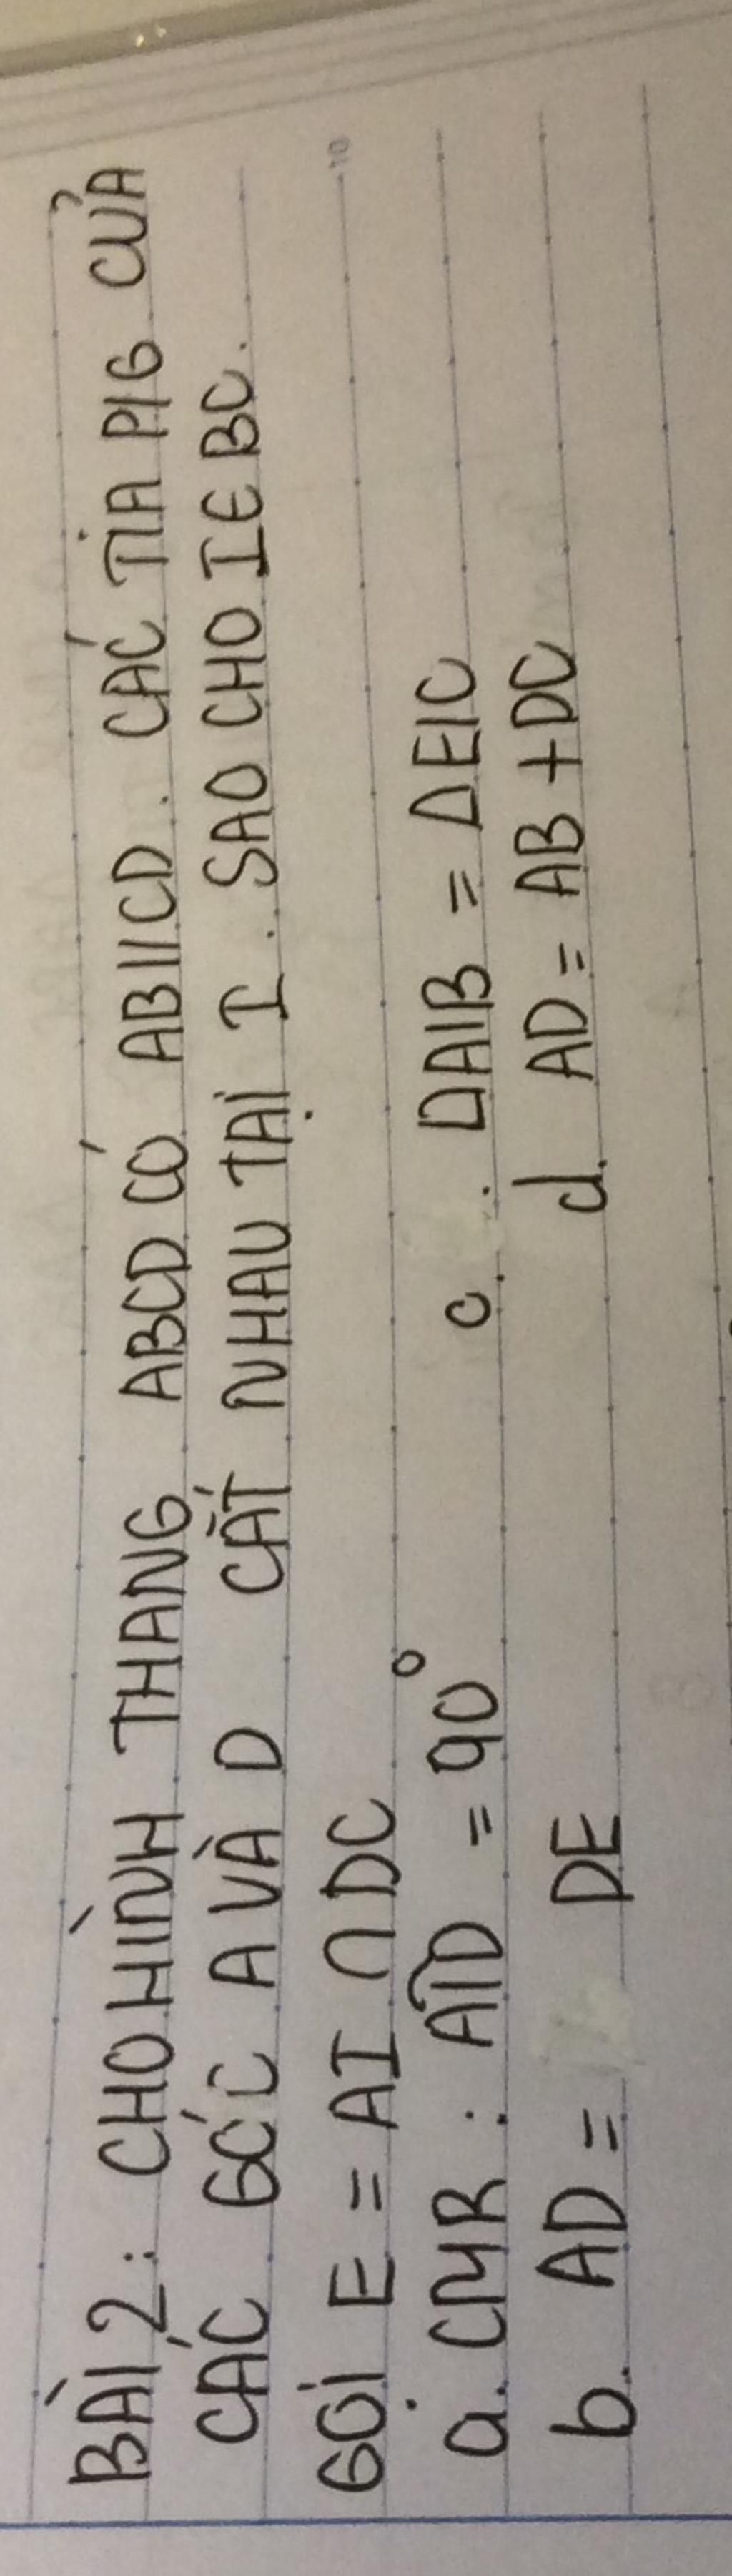 BÀI 2: CHO HÌNH THANG ABCD CÓ AB//CD. CÁC TIA P/G CỦA
CÁC GÓC A VÀ D CẮT NHAU TẠI I. SAO CHO I ∈ BC.
GỌI E = AI ∩ DC
a. CMR: AID = 90°
b. AD = DE
c. ΔAIB = ΔEIC
d. AD = AB + DC